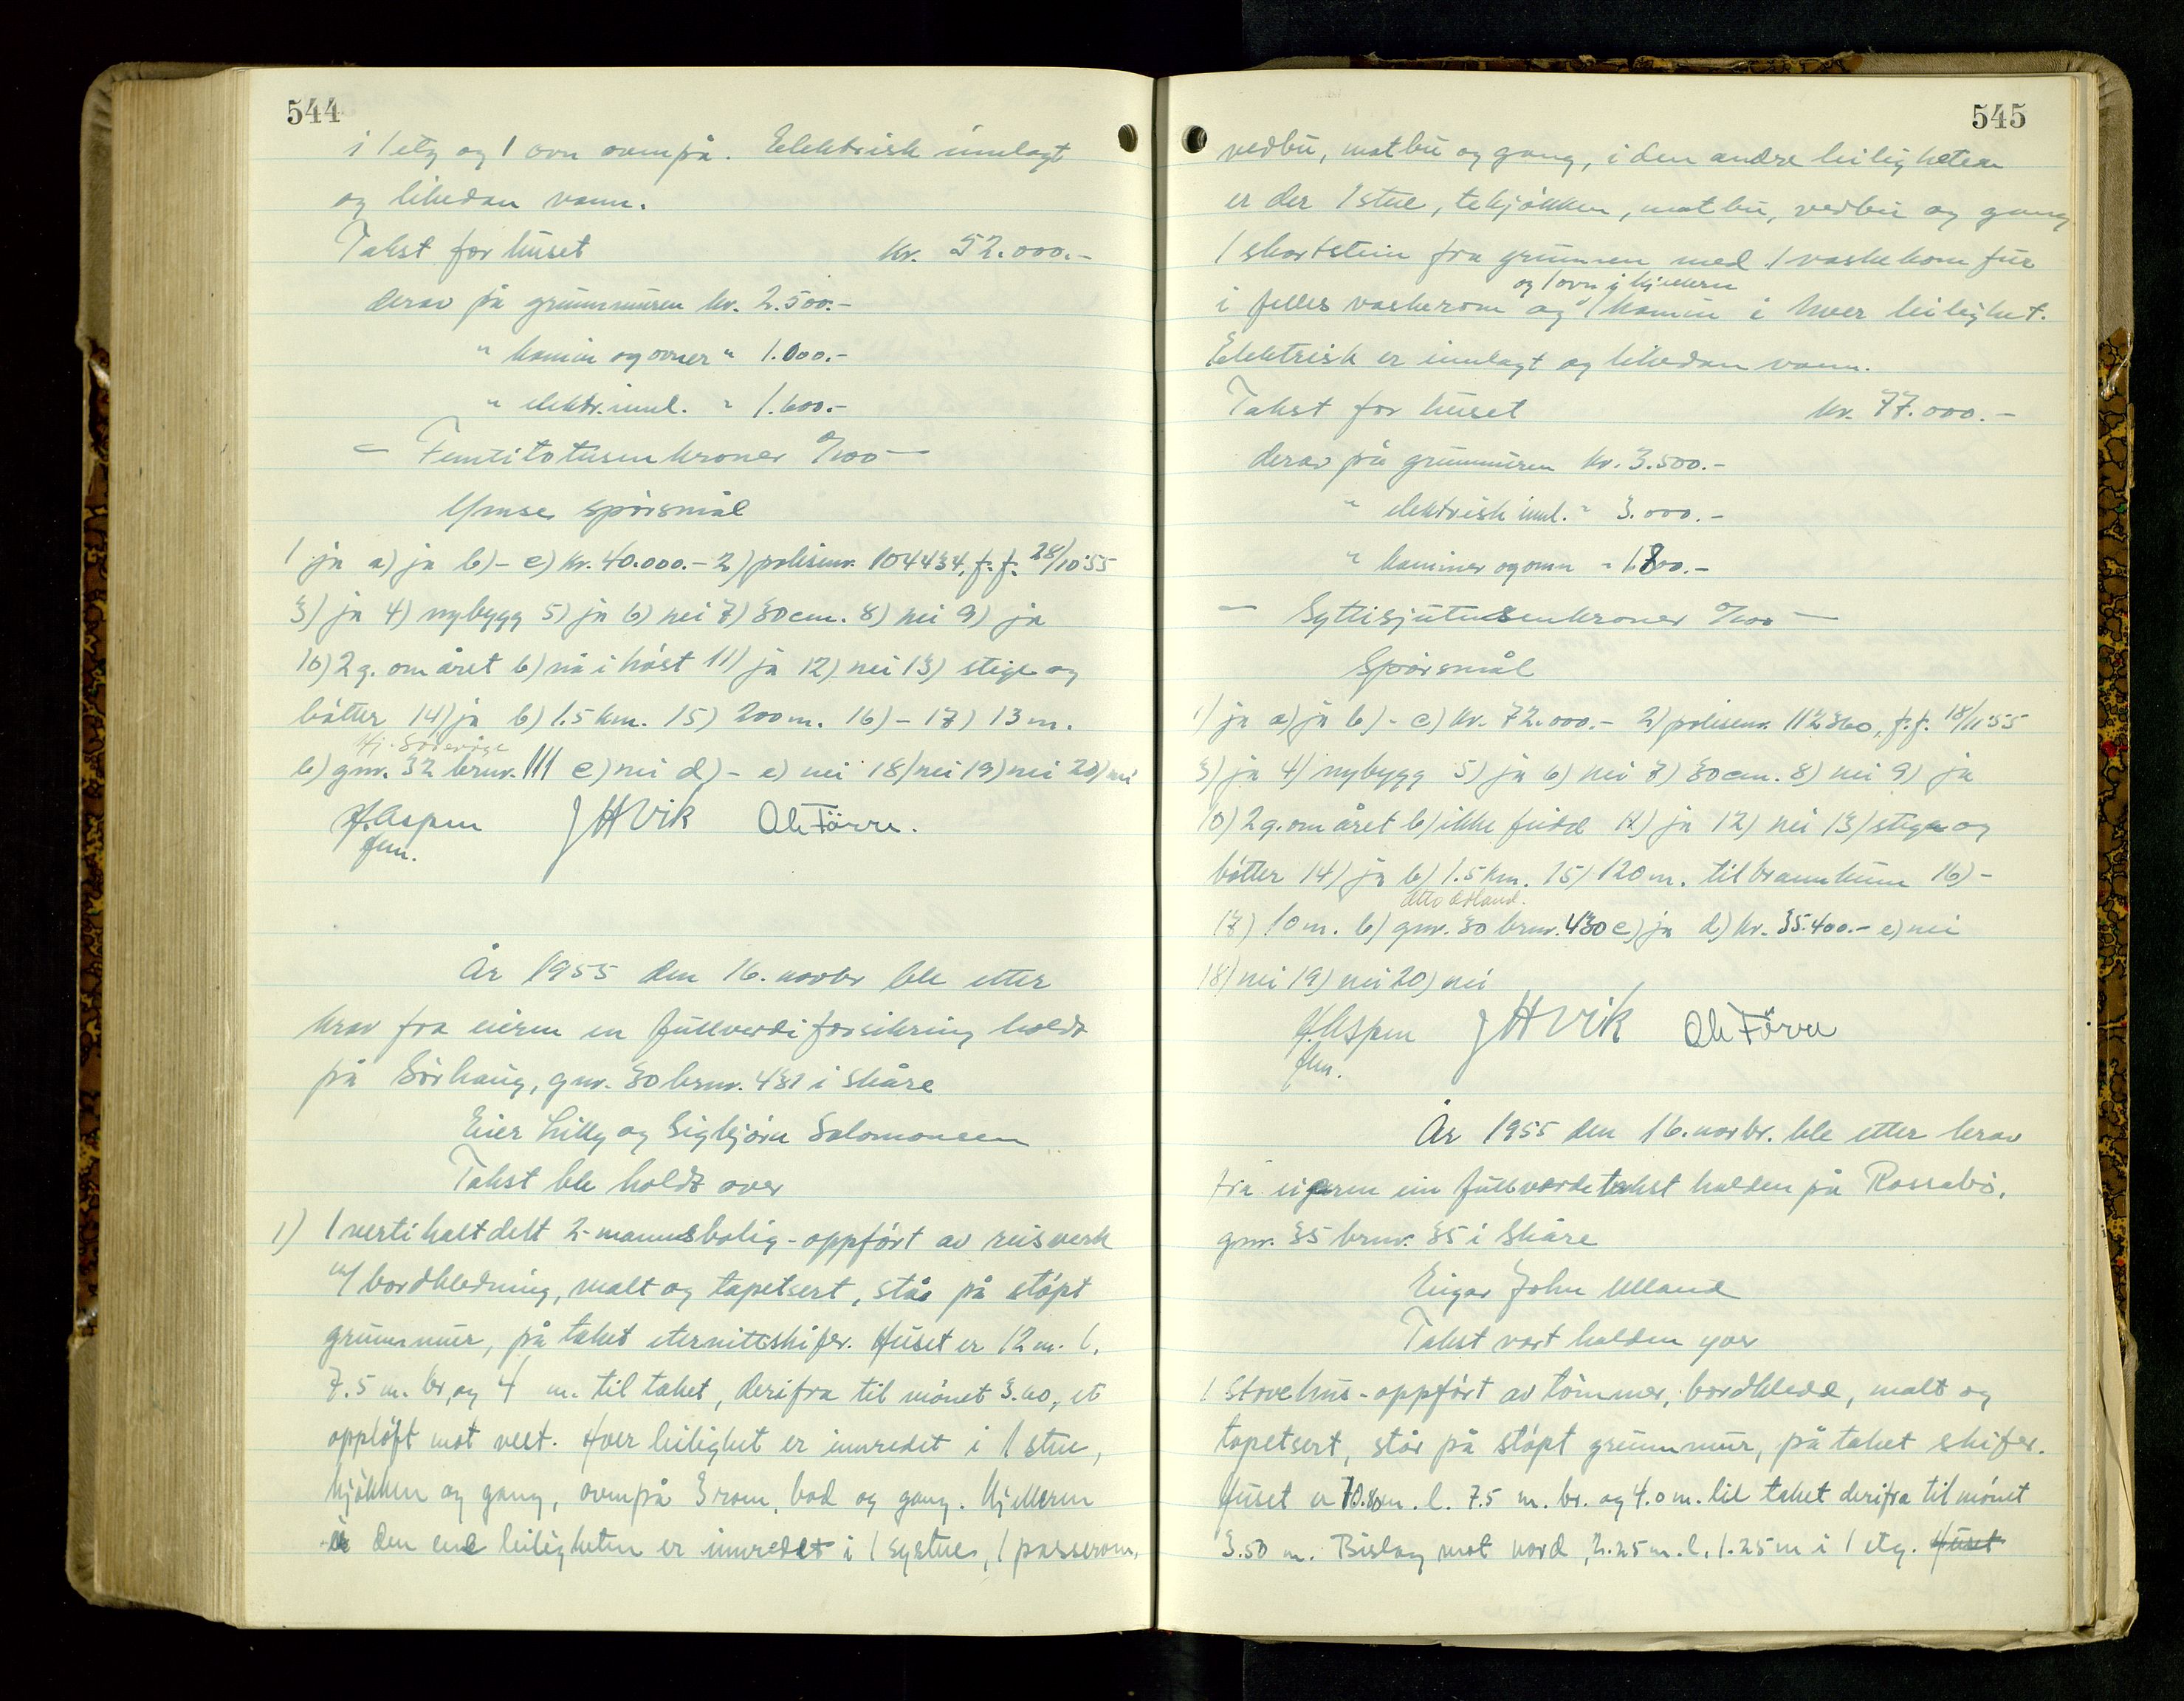 544
i 1 etg og 1 ovn ovenpå. Elektrisk innlagt
og likedan vann.
Takst for huset kr. 52.000.-
derav på grunnmuren kr. 2.500.-
" kamin og ovner " 1.000.-
" elektr. innl. " 1.600.-
- Femtitotusenkroner 0/100 -
Ymse spörsmål
1 ja a) ja b) - c) kr. 40.000.- 2) polisenr. 104434, f.f. 28/10 55
3) ja 4) nybygg 5) ja 6) nei 7) 30 cm. 8) nei 9) ja
10) 2 g. om året b) nå i höst 11) ja 12) nei 13) stige og
bötter 14) ja b) 1.5 km. 15) 200 m. 16) - 17) 13 m.
b) gnr. 32 brnr. 111 c) nei d) - e) nei 18) nei 19) nei 20) nei
H. Aspen JHVik Ole Förre.
fmn.
År 1955 den 16. novbr ble etter
krav fra eieren en fullverdiforsikring holdt
på Sörhaug, gnr. 30 brnr. 431 i Skåre
Eier Lilly og Sigbjörn Salomonsen
Takst ble holdt over
1) 1 vertikaltdelt 2-mannsbolig - oppfört av reisverk
m/ bordkledning, malt og tapetsert, står på stöpt
grunnmur, på taket eternittskifer. Huset er 12 m. l.
7.5 m. br, og 4 m. til taket, derifra til mönet 3.60, et
opplöft mot vest. Hver leilighet er innredet i 1 stue,
kjökken og gang, ovenpå 3 rom, bad og gang. Kjelleren
i den ene leiligheten er innredet i 1 systue, 1 passerom,
545
vedbu, matbu og gang, i den andre leiligheten
er der 1 stue, tekjökken, matbu, vedbu og gang
1 skorstein fra grunnen med 1 vaskekomfur
og 1 ovn i kjelleren
i felles vaskerom og 1 kamin i hver leilighet.
Elektrisk er innlagt og likedan vann.
Takst for huset kr. 77.000.-
derav på grunnmuren kr. 3.500.-
" elektrisk innl. " 3.000.-
" kaminer og omn " 1.800.-
- Syttisjutusenkroner 0/100 -
Spörsmål
1) ja a) ja b) - c) kr. 72.000.- 2) polisenr. 112360, f.f. 18/11 55
3) ja 4) nybygg 5) ja 6) nei 7) 30 cm. 8) nei 9) ja
10) 2 g. om året b) ikke feidd 11) ja 12) nei 13) stige og
bötter 14) ja b) 1.5 km. 15) 120 m. til brannkum 16) -
17) 10 m. b) gnr. 30 brnr. 430 c) ja d) kr. 35.400.- e) nei
18) nei 19) nei 20) nei
H. Aspen JHVik Ole Förre
fmn.
År 1955 den 16. novbr. ble etter krav
frå eigaren ein fullverdetakst halden på Rossabö,
gnr. 35 brnr. 35 i Skåre
Eigar John Ulland
Takst vart halden yver
1 Stovehus - oppfört av tömmer, bordkledd, malt og
tapetsert, står på stöpt grunnmur, på taket skifer.
Huset er 10.80 m. l. 7.5 m. br. og 4.0 m. til taket derifra til mönet
3.50 m. Bislag mot nord, 2.25 m. l. 1.25 m i 1 etg. Huset